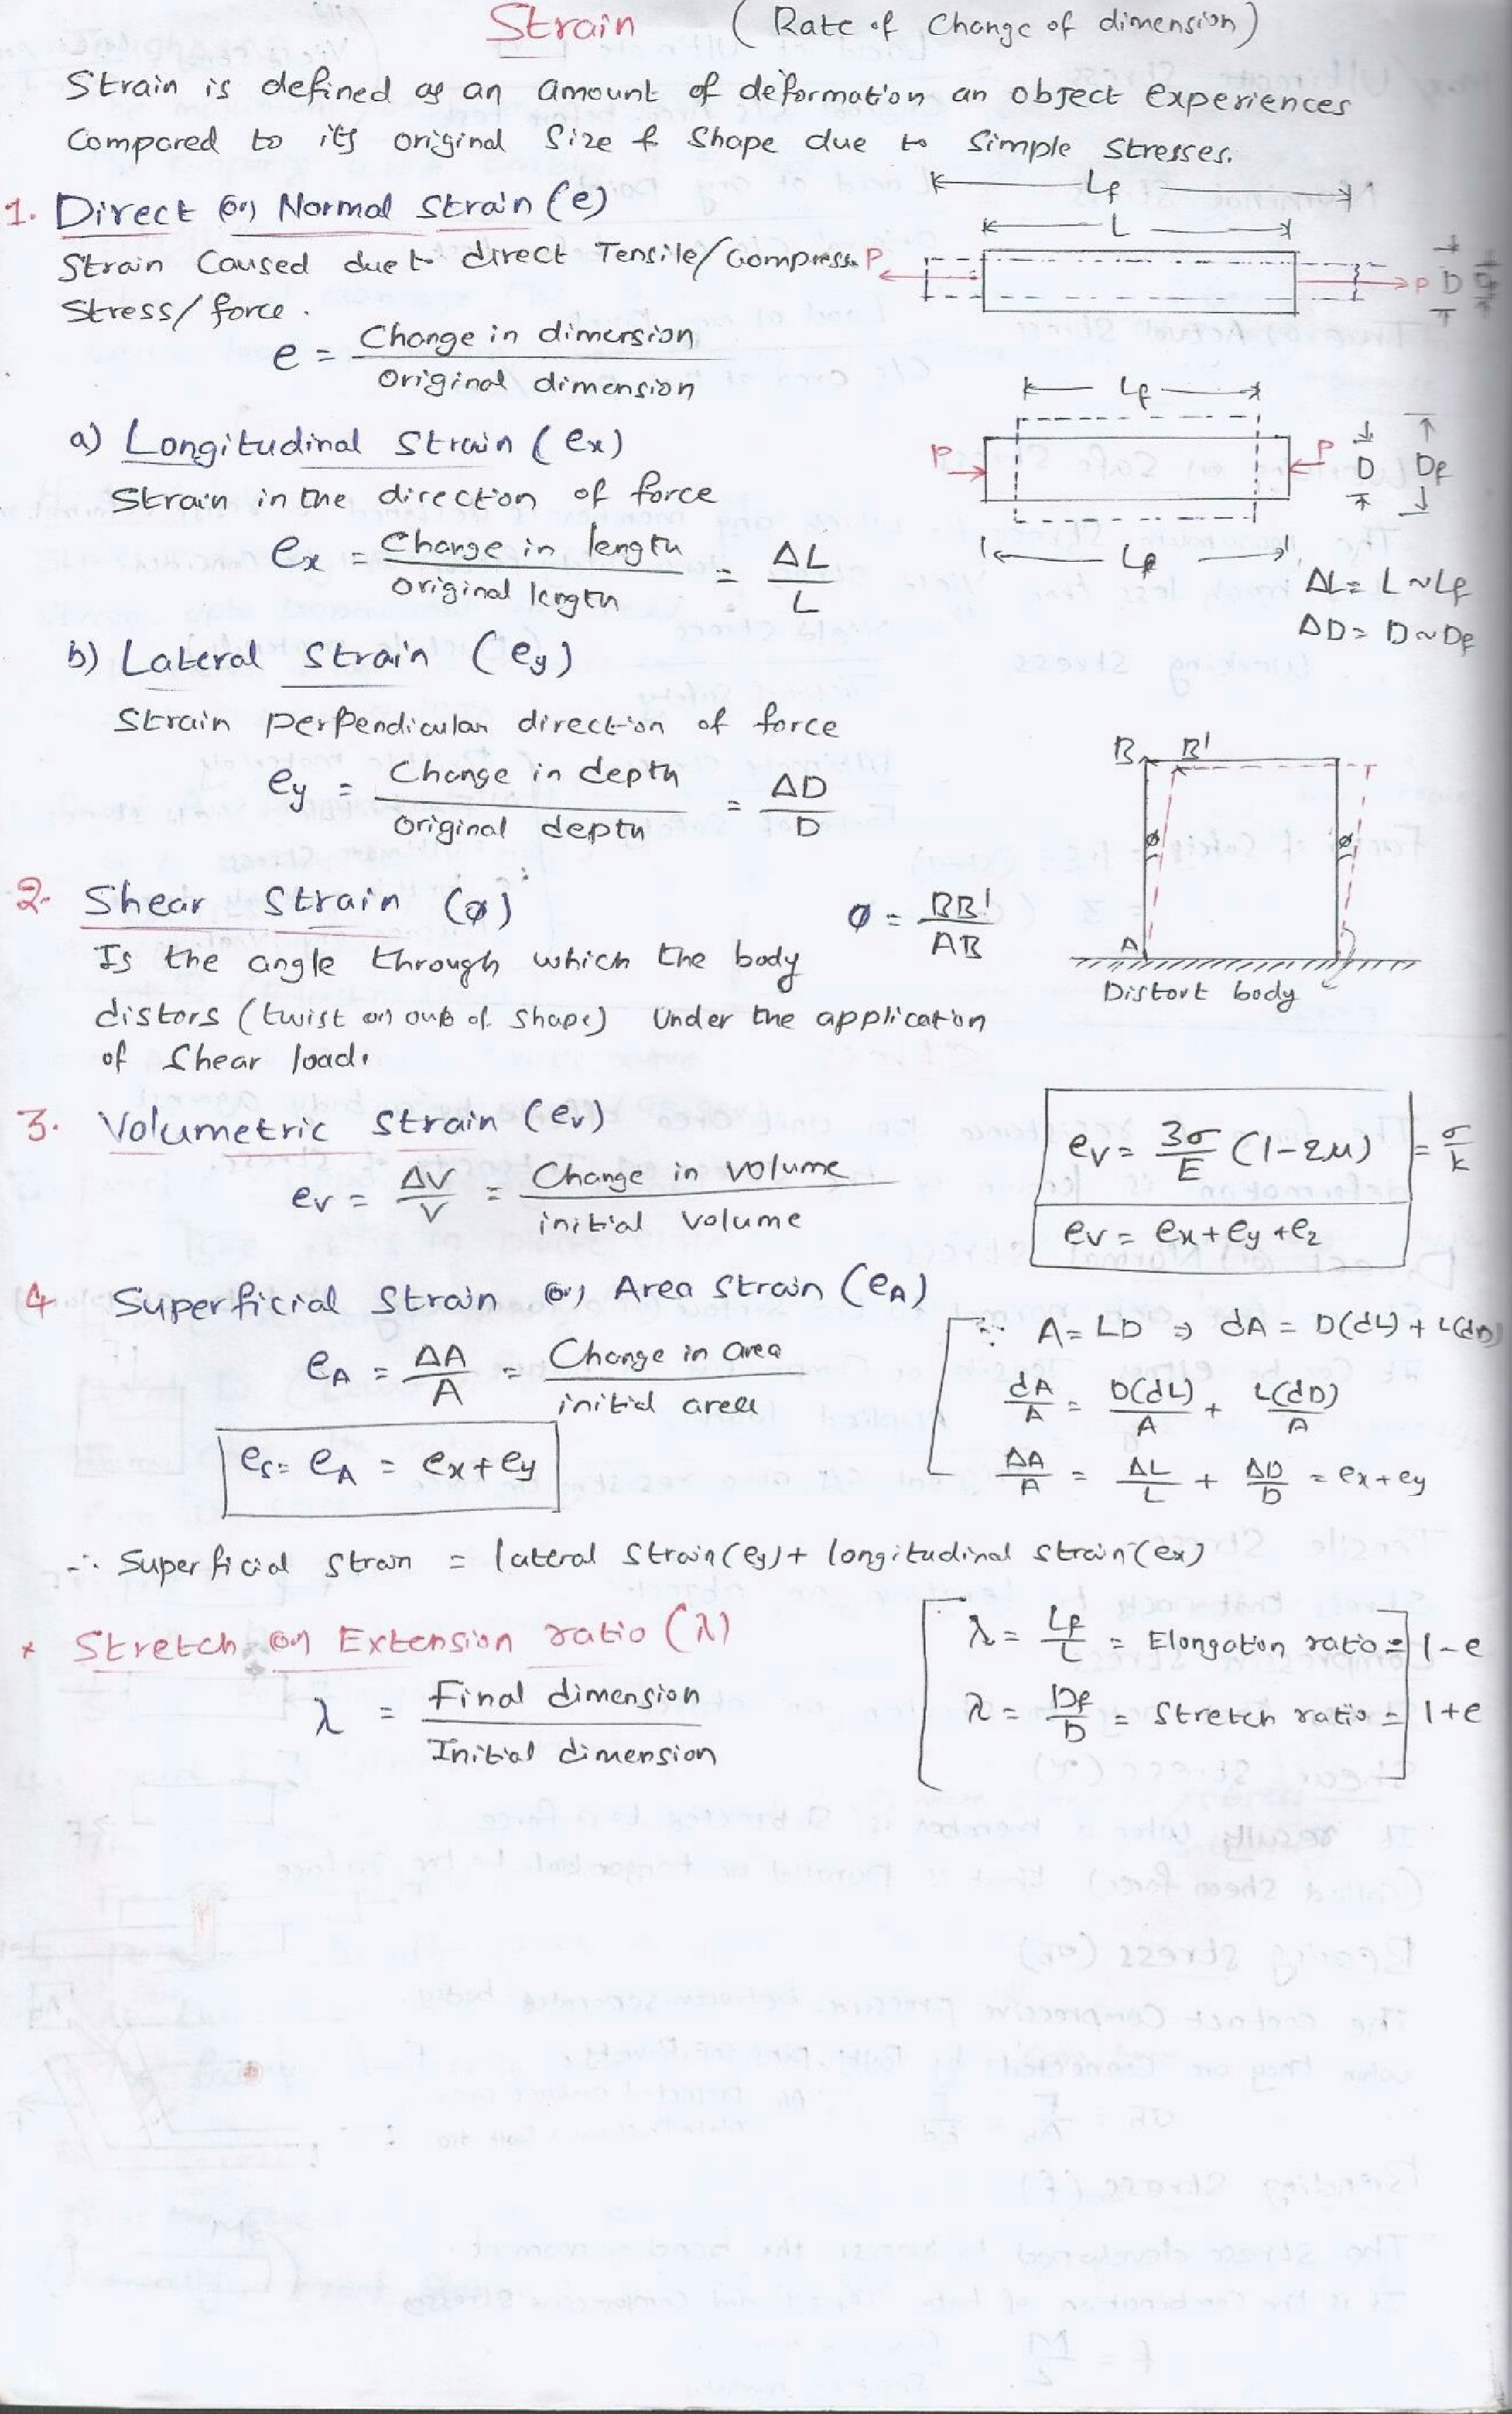 Strain (Rate of Change of dimension)
Strain is defined as an amount of deformation an object experiences
Compared to its original Size & Shape due to Simple Stresses.
1. Direct (or) Normal Strain (e)
Strain Caused due to direct Tensile/Compress.
Stress/force.
e = Change in dimension / Original dimension
Lf
L
P P D Df
a) Longitudinal Strain (ex)
Strain in the direction of force
ex = Change in length / Original length = ΔL / L
Lf
P P D Df
Lf
ΔL = L ~ Lf
ΔD = D ~ Df
b) Lateral Strain (ey)
Strain perpendicular direction of force
ey = Change in depth / Original depth = ΔD / D
B B'
ø ø
A
Distort body
2. Shear Strain (ø) :
ø = BB' / AB
Is the angle through which the body
distors (twist or out of shape) Under the application
of Shear load.
3. Volumetric Strain (ev)
ev = ΔV / V = Change in volume / initial volume
ev = 3σ / E (1-2μ) = σ / k
ev = ex + ey + ez
4 Superficial Strain (or) Area Strain (eA)
eA = ΔA / A = Change in area / initial area
es = eA = ex + ey
∵ A = LD ⇒ dA = D(dL) + L(dD)
dA / A = D(dL) / A + L(dD) / A
ΔA / A = ΔL / L + ΔD / D = ex + ey
∴ Superficial Strain = lateral Strain (ey) + longitudinal Strain (ex)
* Stretch (or) Extension ratio (λ)
λ = Final dimension / Initial dimension
λ = Lf / L = Elongation ratio = 1 - e
λ = Df / D = Stretch ratio = 1 + e